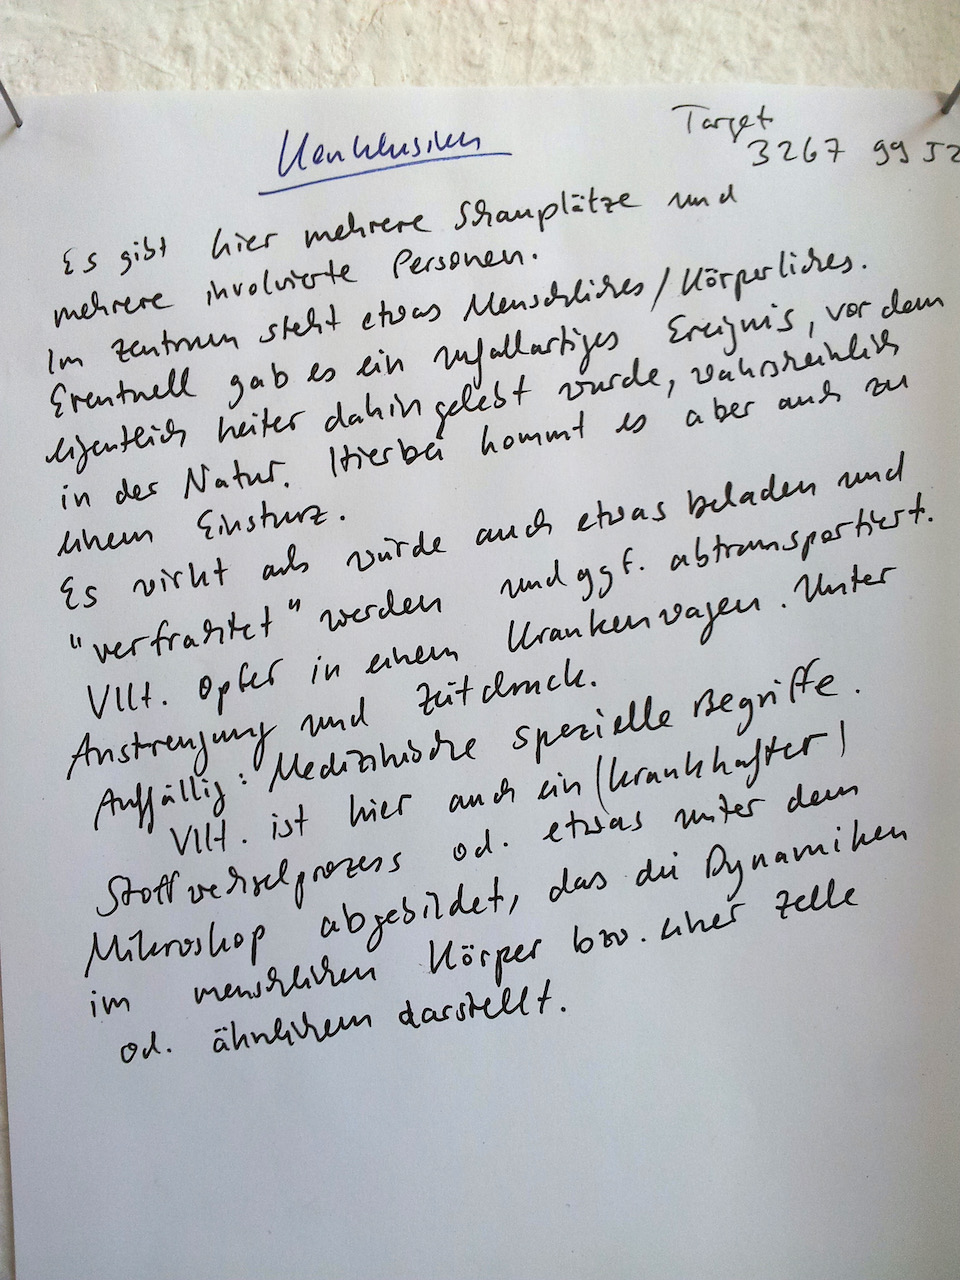 Konklusion
Target
3267 9952
Es gibt hier mehrere Schauplätze und
mehrere involvierte Personen.
Im Zentrum steht etwas Menschliches / Körperliches.
Eventuell gab es ein unfallartiges Ereignis, vor dem
eigentlich heiter dahin gelebt wurde, wahrscheinlich
in der Natur. Hierbei kommt es aber auch zu
einem Einsturz.
Es wirkt als würde auch etwas beladen und
"verfrachtet" werden und ggf. abtransportiert.
Vllt. Opfer in einem Krankenwagen. Unter
Anstrengung und Zeitdruck.
Auffällig: Medizinische spezielle Begriffe.
Vllt. ist hier auch ein (krankhafter)
Stoffwechselprozess od. etwas unter dem
Mikroskop abgebildet, das die Dynamiken
im menschlichen Körper bzw. einer Zelle
od. ähnlichem darstellt.